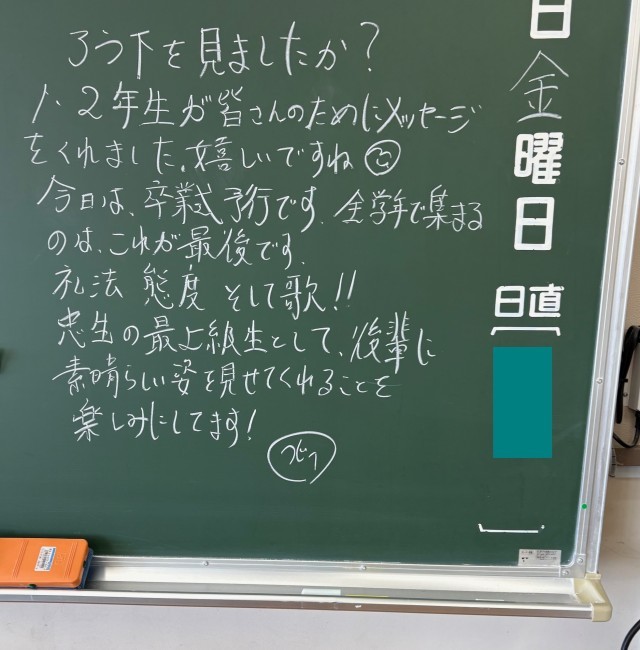 ろう下を見ましたか？
1・2年生が皆さんのためにメッセージ
をくれました。嬉しいですね
今日は、卒業式予行です。全学年で集まる
のは、これが最後です。
礼法 態度 そして歌!!
忠生の最上級生として、後輩に
素晴らしい姿を見せてくれることを
楽しみにしてます!
日
金
曜
日
日直